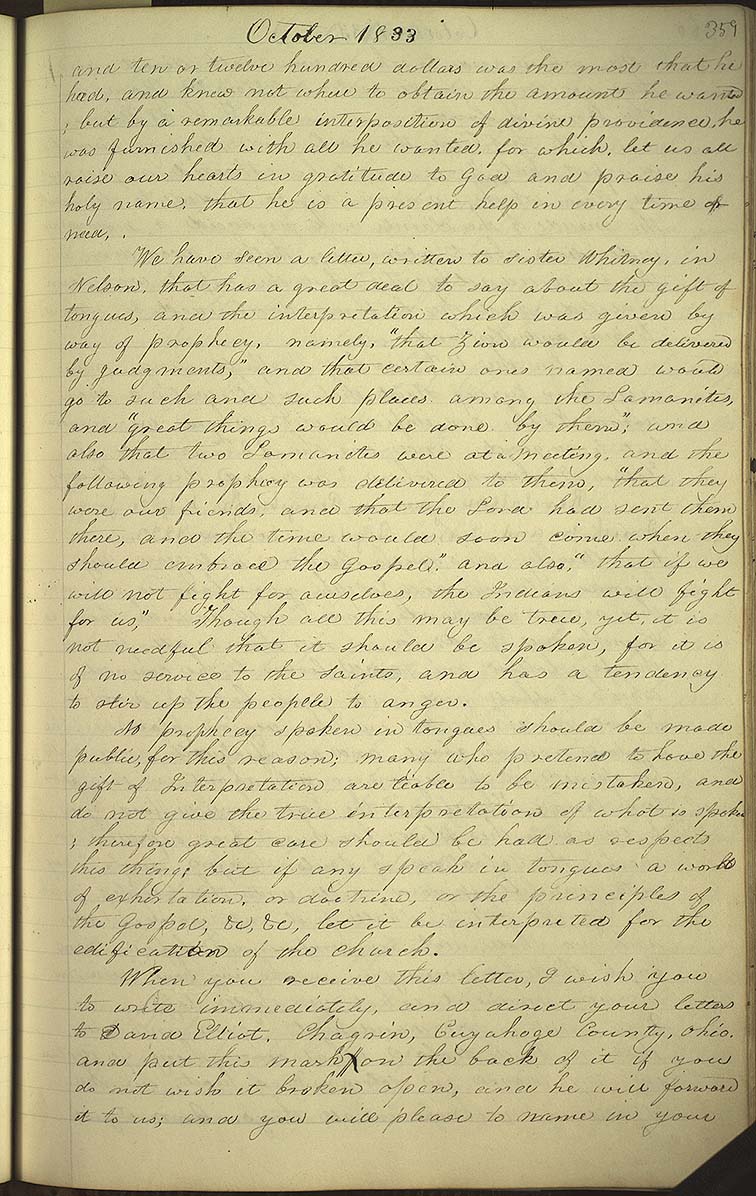 October 1833
359
and ten or twelve hundred dollars was the most that he
had, and knew not where to obtain the amount he wanted
; but by a remarkable interposition of divine providence, he
was furnished with all he wanted, for which, let us all
raise our hearts in gratitude to God and praise his
holy name, that he is a present help in every time of
need,.
We have seen a letter, written to sister Whitney, in
Nelson, that has a great deal to say about the gift of
tongues, and the interpretation which was given by
way of prophecy, namely, "that Zion would be delivered
by judgments," and that certain ones named would
go to such and such places among the Lamanites,
and "great things would be done by them"; and
also that two Lamanites were at a meeting, and the
following prophecy was delivered to them, "that they
were our friends, and that the Lord had sent them
there, and the time would soon come when they
should embrace the Gospel." and also, "that if we
will not fight for ourselves, the Indians will fight
for us," Though all this may be true, yet, it is
not needful that it should be spoken, for it is
of no service to the saints, and has a tendency
to stir up the people to anger.
No prophecy spoken in tongues should be made
public, for this reason; many who pretend to have the
gift of Interpretation are liable to be mistaken, and
do not give the true interpretation of what is spoken
; therefore great care should be had as respects
this thing; but if any speak in tongues a word
of exhortation, or doctrine, or the principles of
the Gospel, &c, &c, let it be interpreted for the
edification of the church.
When you receive this letter, I wish you
to write immediately, and direct your letters
to David Elliot, Chagrin, Cuyahoge County, Ohio.
and put this mark X on the back of it if you
do not wish it broken open, and he will forward
it to us; and you will please to name in your